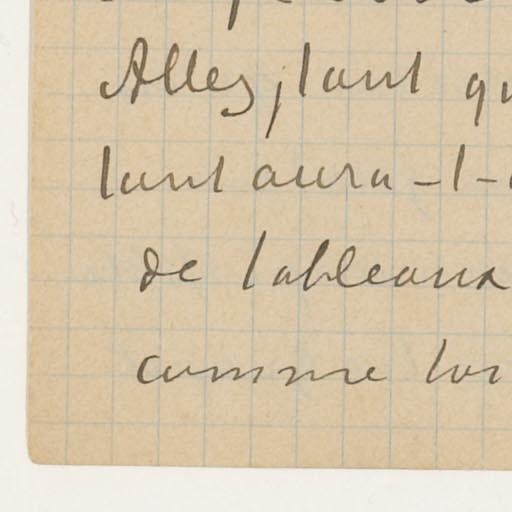 Allez, tant qu
tant aura-t-
de tableaux
comme toi